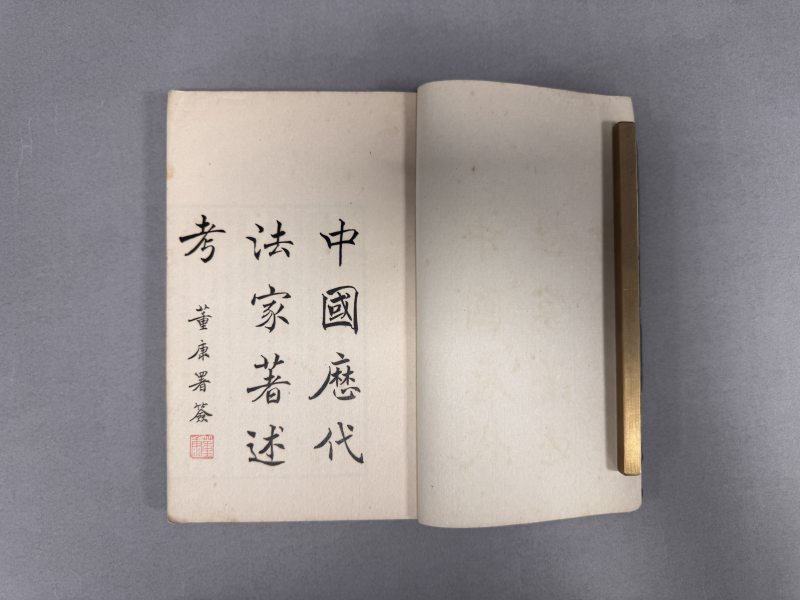 中國歷代
法家著述
考
董康署簽